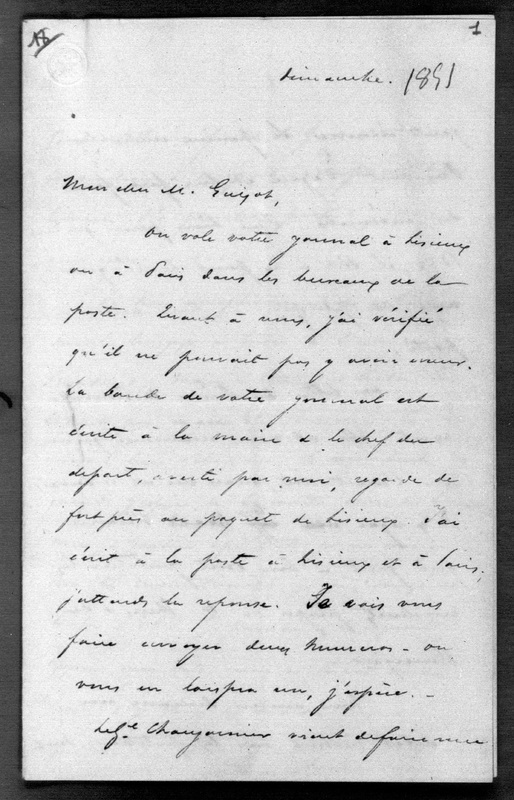 18
1
dimanche. 1851
Mon cher M. Guizot,
On vole votre journal à Lisieux
ou à Paris dans les bureaux de la
poste. Quant à nous, j'ai vérifié
qu'il ne pouvait pas y avoir erreur.
La bande de votre journal est
écrite à la main & le chef du
départ, averti par moi, regarde de
fort près au paquet de Lisieux. J'ai
écrit à la poste à Lisieux et à Paris,
j'attends la réponse. Je vais vous
faire envoyer deux numéros - on
vous en laissera un, j'espère. -
Le gal Changarnier vient de faire une